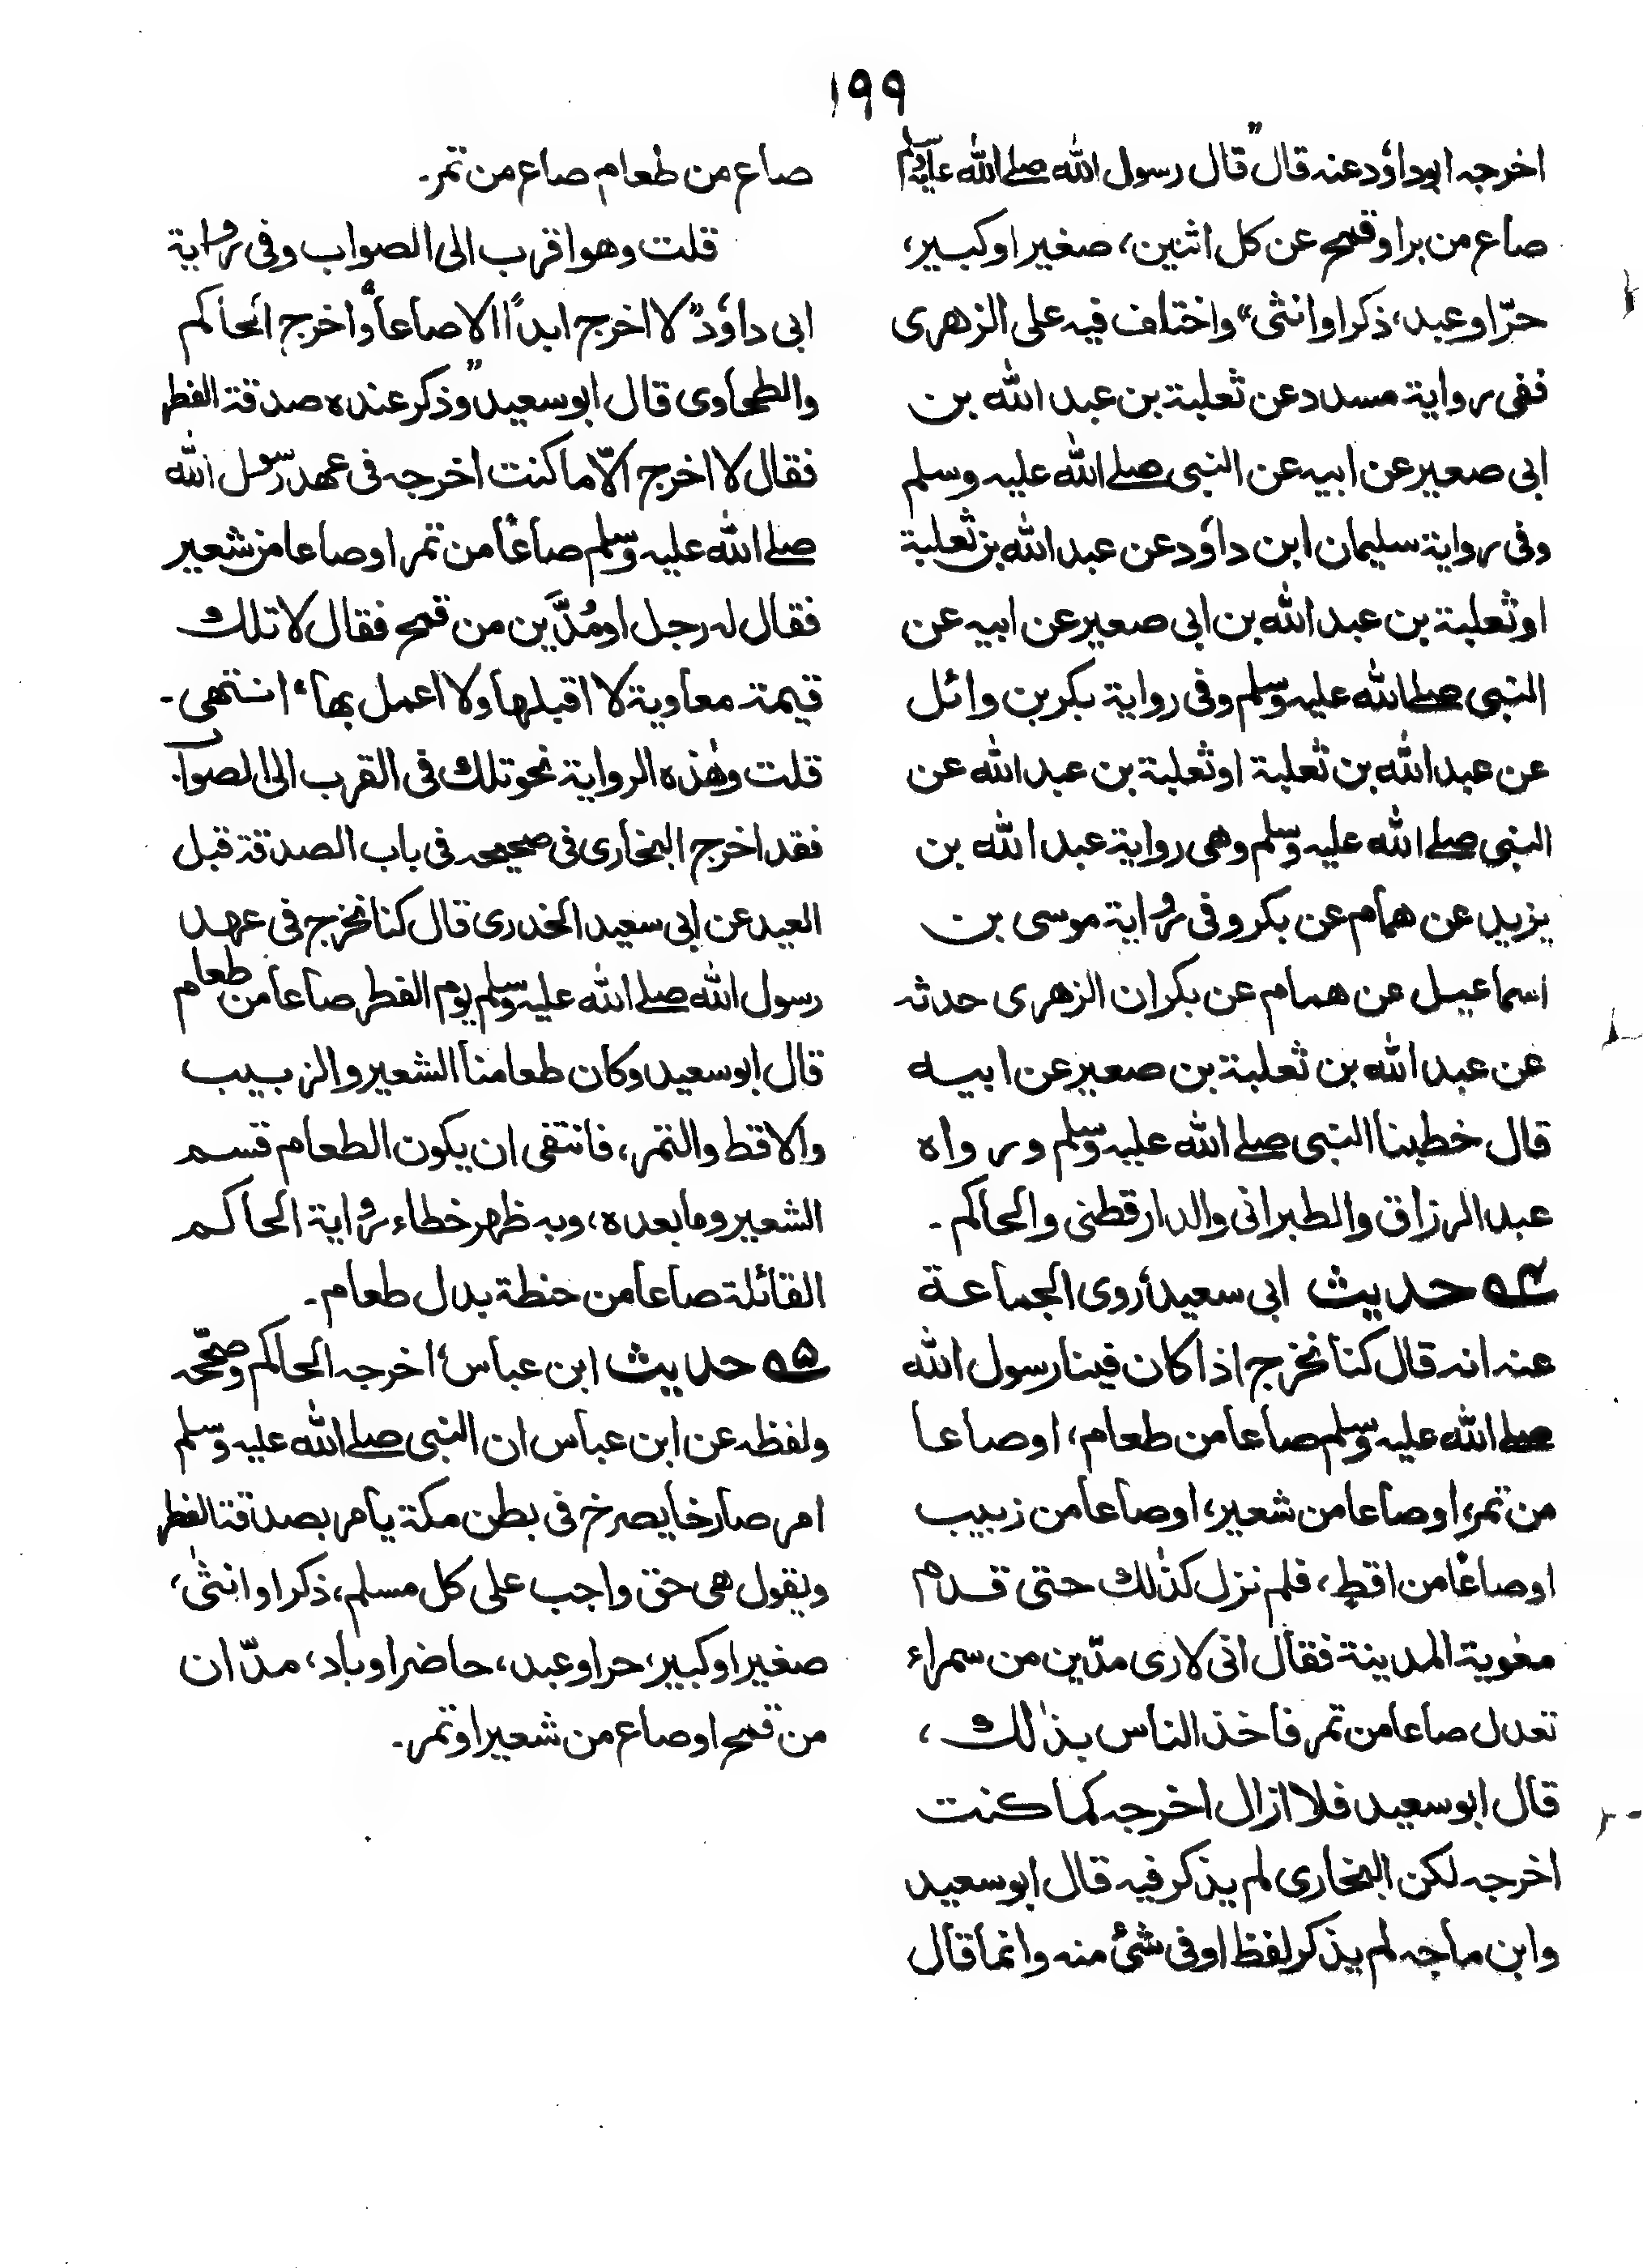 ۱۹۹
اخرجہ ابوداؤد عنہ قال "قال رسول اللہ صلے اللہ علیہ وسلم
صاع من بر او قمح عن کل اثنین، صغیر او کبیر،
حرّ او عبد، ذکر او انثی" واختلف فیہ علی الزھری
ففی روایۃ مسدد عن ثعلبۃ بن عبد اللہ بن
ابی صعیر عن ابیہ عن النبی صلے اللہ علیہ وسلم
وفی روایۃ سلیمان ابن داؤد عن عبد اللہ بن ثعلبۃ
او ثعلبۃ بن عبد اللہ بن ابی صعیر عن ابیہ عن
النبی صلے اللہ علیہ وسلم وفی روایۃ بکر بن وائل
عن عبد اللہ بن ثعلبۃ او ثعلبۃ بن عبد اللہ عن
النبی صلے اللہ علیہ وسلم وھی روایۃ عبد اللہ بن
یزید عن ھمام عن بکر وفی روایۃ موسی بن
اسماعیل عن ھمام عن بکر ان الزھری حدثہ
عن عبد اللہ بن ثعلبۃ بن صعیر عن ابیہ
قال خطبنا النبی صلے اللہ علیہ وسلم ورواہ
عبد الرزاق والطبرانی والدارقطنی والحاکم۔
۵۴ حدیث ابی سعید، روی الجماعۃ
عنہ انہ قال کنا نخرج اذا کان فینا رسول اللہ
صلے اللہ علیہ وسلم صاعا من طعام، او صاعا
من تمر، او صاعا من شعیر، او صاعا من زبیب
او صاعًا من اقط، فلم نزل کذٰلک حتی قدم
معٰویۃ المدینۃ فقال انی لاری مدّین من سمراء
تعدل صاعا من تمر فاخذ الناس بذٰلک،
قال ابو سعید فلا ازال اخرجہ کما کنت
اخرجہ لکن البخاری لم یذکر فیہ قال ابو سعید
وابن ماجہ لم یذکر لفظ او فی شئ منہ وانما قال
صاع من طعام صاع من تمر۔
قلت وھو اقرب الی الصواب وفی روایۃ
ابی داؤد "لا اخرج ابدًا الا صاعا" واخرج الحاکم
والطحاوی قال ابو سعید "وذکر عندہ صدقۃ الفطر
فقال لا اخرج الّا ما کنت اخرجہ فی عھد رسول اللہ
صلے اللہ علیہ وسلم صاعًا من تمر او صاعا من شعیر
فقال لہ رجل او مُدَّین من قمح فقال لا تلک
قیمۃ معاویۃ لا اقبلھا ولا اعمل بھا" انتھی۔
قلت وھٰذہ الروایۃ نحو تلک فی القرب الی الصواب
فقد اخرج البخاری فی صحیحہ فی باب الصدقۃ قبل
العید عن ابی سعید الخدری قال کنا نخرج فی عھد
رسول اللہ صلے اللہ علیہ وسلم یوم الفطر صاعا من طعام
قال ابو سعید وکان طعامنا الشعیر والزبیب
والاقط والتمر، فانتفی ان یکون الطعام قسم
الشعیر وما بعدہ، وبہ ظھر خطاء روایۃ الحاکم
القائلۃ صاعا من حنطۃ بدل طعام۔
۵۵ حدیث ابن عباس، اخرجہ الحاکم وصحّحہ
ولفظہ عن ابن عباس ان النبی صلے اللہ علیہ وسلم
امر صارخا یصرخ فی بطن مکۃ یامر بصدقۃ الفطر
ویقول ھی حق واجب علی کل مسلم، ذکر او انثیٰ،
صغیر او کبیر، حر او عبد، حاضر او باد، مدّان
من قمح او صاع من شعیر او تمر۔